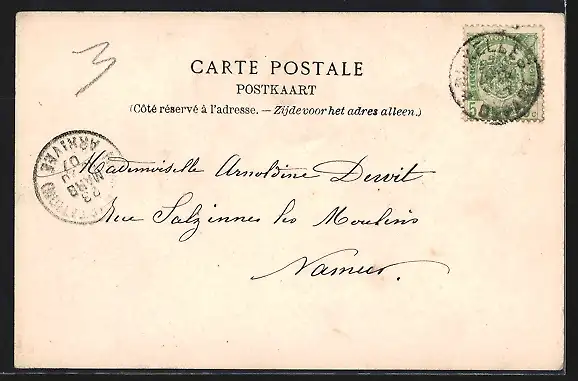 CARTE POSTALE
POSTKAART
(Côté réservé à l'adresse. — Zijde voor het adres alleen.)
5 5c
3
Mademoiselle Arnoldine Dewit
Rue Salzinnes les Moulins
Namur.
ARRIVÉE
07
MARS
23